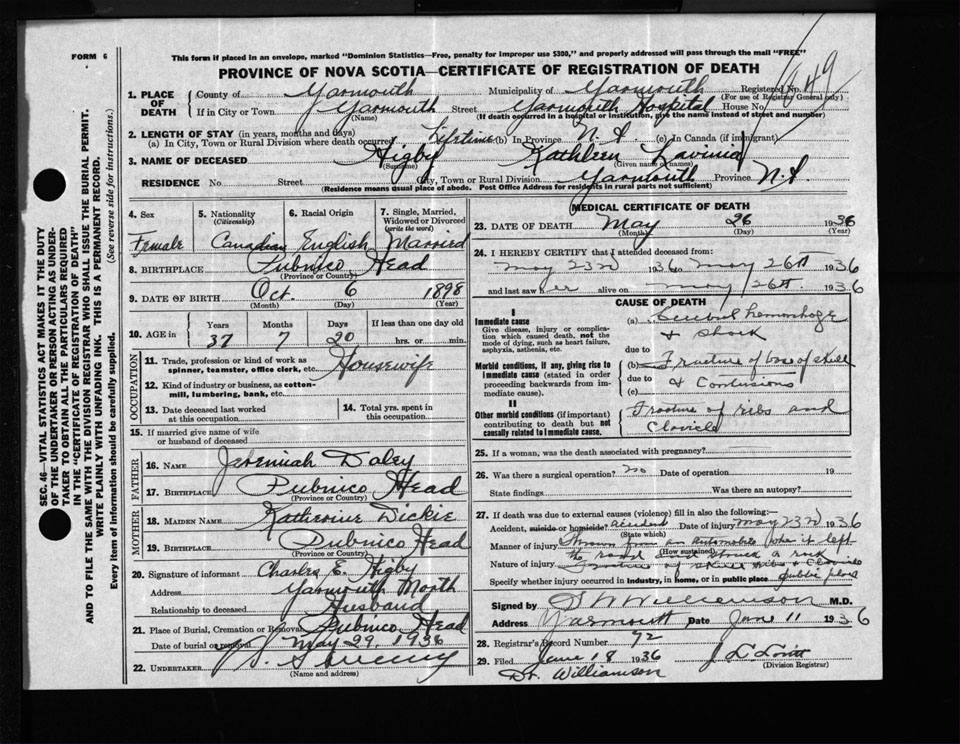 FORM 6
This form if placed in an envelope, marked "Dominion Statistics—Free, penalty for improper use $300," and properly addressed will pass through the mail "FREE"
PROVINCE OF NOVA SCOTIA—CERTIFICATE OF REGISTRATION OF DEATH
1. PLACE OF DEATH
County of Yarmouth Municipality of Yarmouth Registered No. 949
(For use of Registrar General only)
If in City or Town Yarmouth Street Yarmouth Hospital House No.
(Name) (If death occurred in a hospital or institution, give the name instead of street and number)
2. LENGTH OF STAY (in years, months and days)
(a) In City, Town or Rural Division where death occurred Lifetime (b) In Province N.S. (c) In Canada (if immigrant)
3. NAME OF DECEASED Higby Kathleen Lavinia
(Surname) (Given name or names)
RESIDENCE No Street City, Town or Rural Division Yarmouth Province N.S.
(Residence means usual place of abode. Post Office Address for residents in rural parts not sufficient)
4. Sex Female
5. Nationality (Citizenship) Canadian
6. Racial Origin English
7. Single, Married, Widowed or Divorced (write the word) Married
8. BIRTHPLACE Pubnico Head
(Province or Country)
9. DATE OF BIRTH Oct. 6 1898
(Month) (Day) (Year)
10. AGE in Years 37 Months 7 Days 20 If less than one day old hrs. or min.
OCCUPATION
11. Trade, profession or kind of work as spinner, teamster, office clerk, etc. Housewife
12. Kind of industry or business, as cotton-mill, lumbering, bank, etc.
13. Date deceased last worked at this occupation
14. Total yrs. spent in this occupation
15. If married give name of wife or husband of deceased
FATHER
16. NAME Jeremiah Daley
17. BIRTHPLACE Pubnico Head
(Province or Country)
MOTHER
18. MAIDEN NAME Katherine Dickie
19. BIRTHPLACE Pubnico Head
(Province or Country)
20. Signature of informant Charles E. Higby
Address Yarmouth North
Relationship to deceased Husband
21. Place of Burial, Cremation or Removal Pubnico Head
Date of burial or removal May 29, 1936
22. UNDERTAKER
(Name and address)
MEDICAL CERTIFICATE OF DEATH
23. DATE OF DEATH May 26 1936
(Month) (Day) (Year)
24. I HEREBY CERTIFY that I attended deceased from:
May 23rd 1936 to May 26th 1936
and last saw her alive on May 26th. 1936
CAUSE OF DEATH
I
Immediate cause
Give disease, injury or complication which caused death, not the mode of dying, such as heart failure, asphyxia, asthenia, etc.
(a) Cerebral hemmrhoge
& shock
due to
Morbid conditions, if any, giving rise to immediate cause (stated in order proceeding backwards from immediate cause).
(b) Fracture of base of skull
due to & Contusions
(c)
II
Other morbid conditions (if important) contributing to death but not causally related to immediate cause.
Fracture of ribs and
Clavicle
25. If a woman, was the death associated with pregnancy?
26. Was there a surgical operation? no Date of operation 19
State findings Was there an autopsy?
27. If death was due to external causes (violence) fill in also the following:—
Accident, suicide or homicide? accident Date of injury May 23rd 1936
(State which)
Manner of injury Thrown from an automobile when it left
the road and struck a rock
(How sustained)
Nature of injury Fracture of skull ribs & Clavicle
Specify whether injury occurred in industry, in home, or in public place public place
Signed by Williamson M.D.
Address Yarmouth Date June 11 1936
28. Registrar's Record Number 72
29. Filed June 18 1936
(Division Registrar)
Dr. Williamson
SEC. 46—VITAL STATISTICS ACT MAKES IT THE DUTY
OF THE UNDERTAKER OR PERSON ACTING AS UNDER-
TAKER TO OBTAIN ALL THE PARTICULARS REQUIRED
IN THE "CERTIFICATE OF REGISTRATION OF DEATH"
AND TO FILE THE SAME WITH THE DIVISION REGISTRAR WHO SHALL ISSUE THE BURIAL PERMIT.
WRITE PLAINLY WITH UNFADING INK. THIS IS A PERMANENT RECORD.
Every item of information should be carefully supplied. (See reverse side for instructions.)